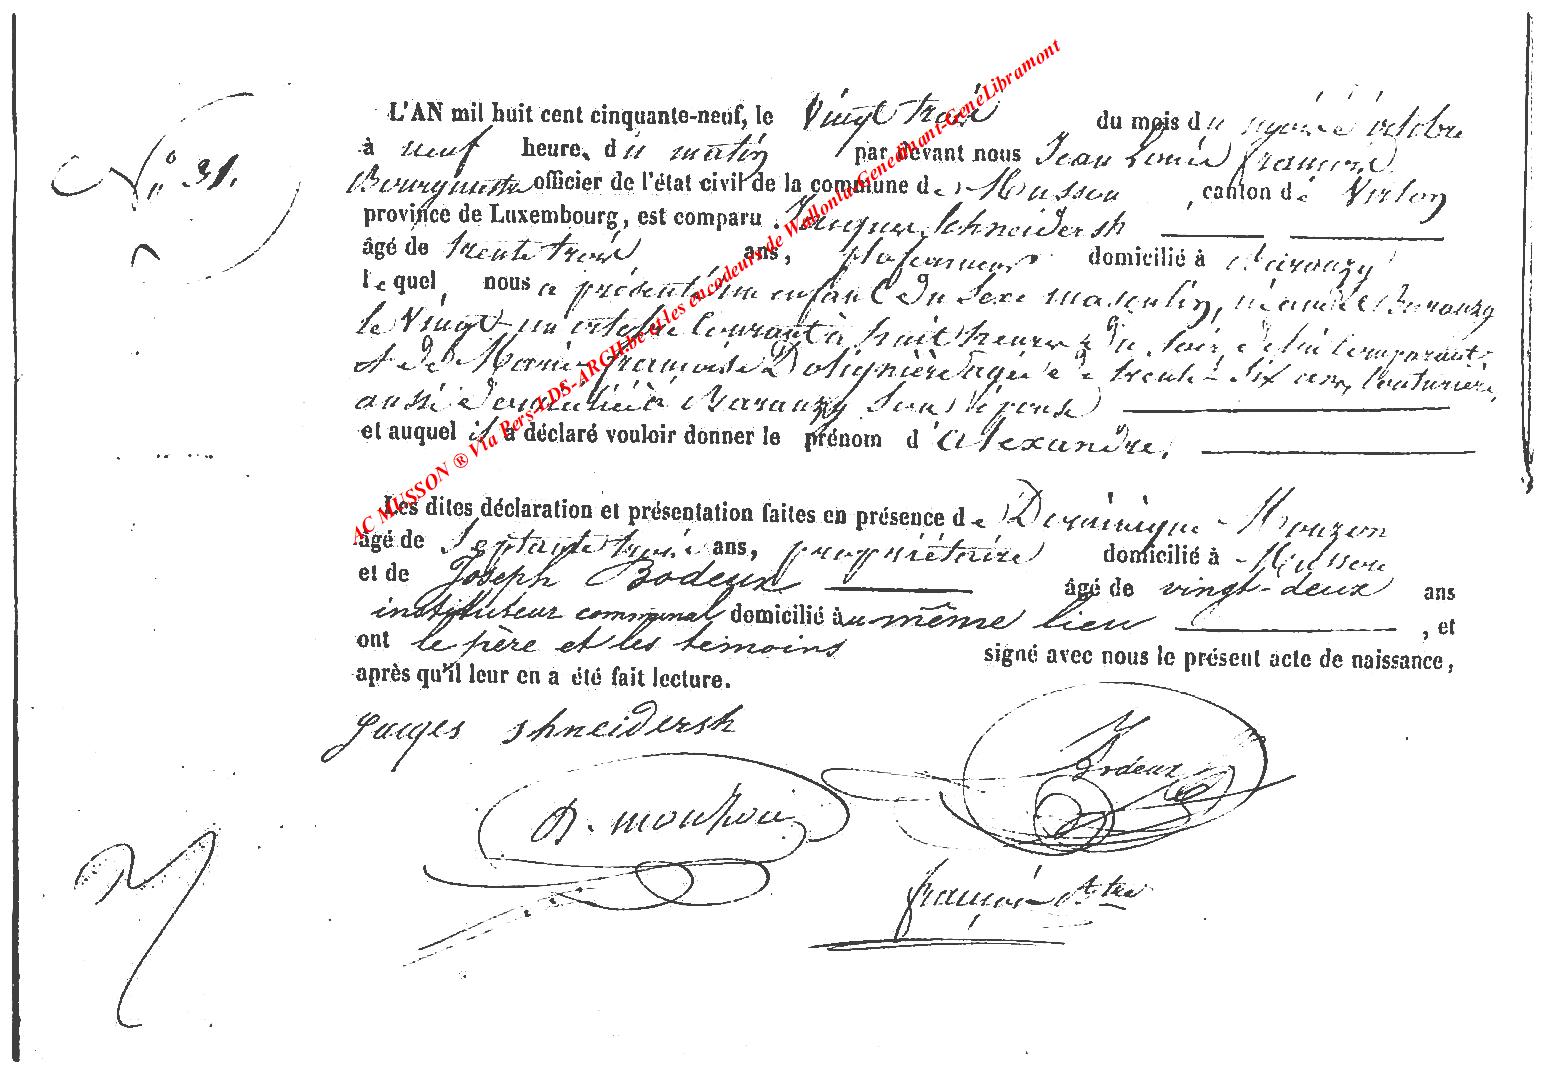 N° 31.
L'AN mil huit cent cinquante-neuf, le Vingt trois du mois du octobre
à neuf heures du matin par devant nous Jean Louis François
Bourgmestre officier de l'état civil de la commune de Musson, canton de Virton
province de Luxembourg, est comparu Jacques Schneidersh
âgé de trente trois ans, plafonneur domicilié à Baranzy
lequel nous a présenté un enfant du Sexe masculin, né audit Baranzy
le Vingt un octobre Courant à huit heures du Soir, de lui Comparant
et de Marie françoise âgée de trente-Six ans, Couturière,
aussi domiciliée à Baranzy Son épouse
et auquel il a déclaré vouloir donner le prénom d'Alexandre.
Les dites déclaration et présentation faites en présence de Dominique Mouzon
âgé de Septante trois ans, propriétaire domicilié à Musson
et de Joseph Bodeux âgé de vingt-deux ans
instituteur communal domicilié au même lieu, et
ont le père et les témoins signé avec nous le présent acte de naissance,
après qu'il leur en a été fait lecture.
shneidersh
Bodeux
D. mouzon
françois Btre
AC MUSSON ® Via Pers-LDS-ARCH.be et les encodeurs de Wallonia-Genedinant-GeneLibramont